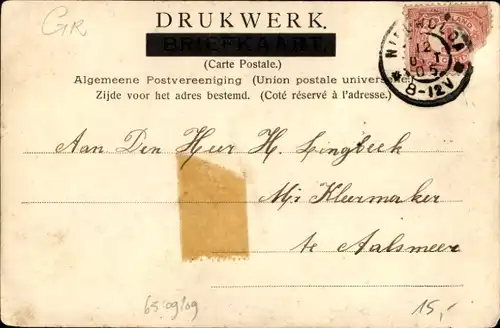 GR
DRUKWERK.
BRIEFKAART.
(Carte Postale.)
Algemeene Postvereeniging (Union postale universelle.)
Zijde voor het adres bestemd. (Coté réservé à l'adresse.)
12
05
8-12V
Aan Den Heer H. Lingbeek
Mr Kleermaker
te Aalsmeer
65:09/09
15,-